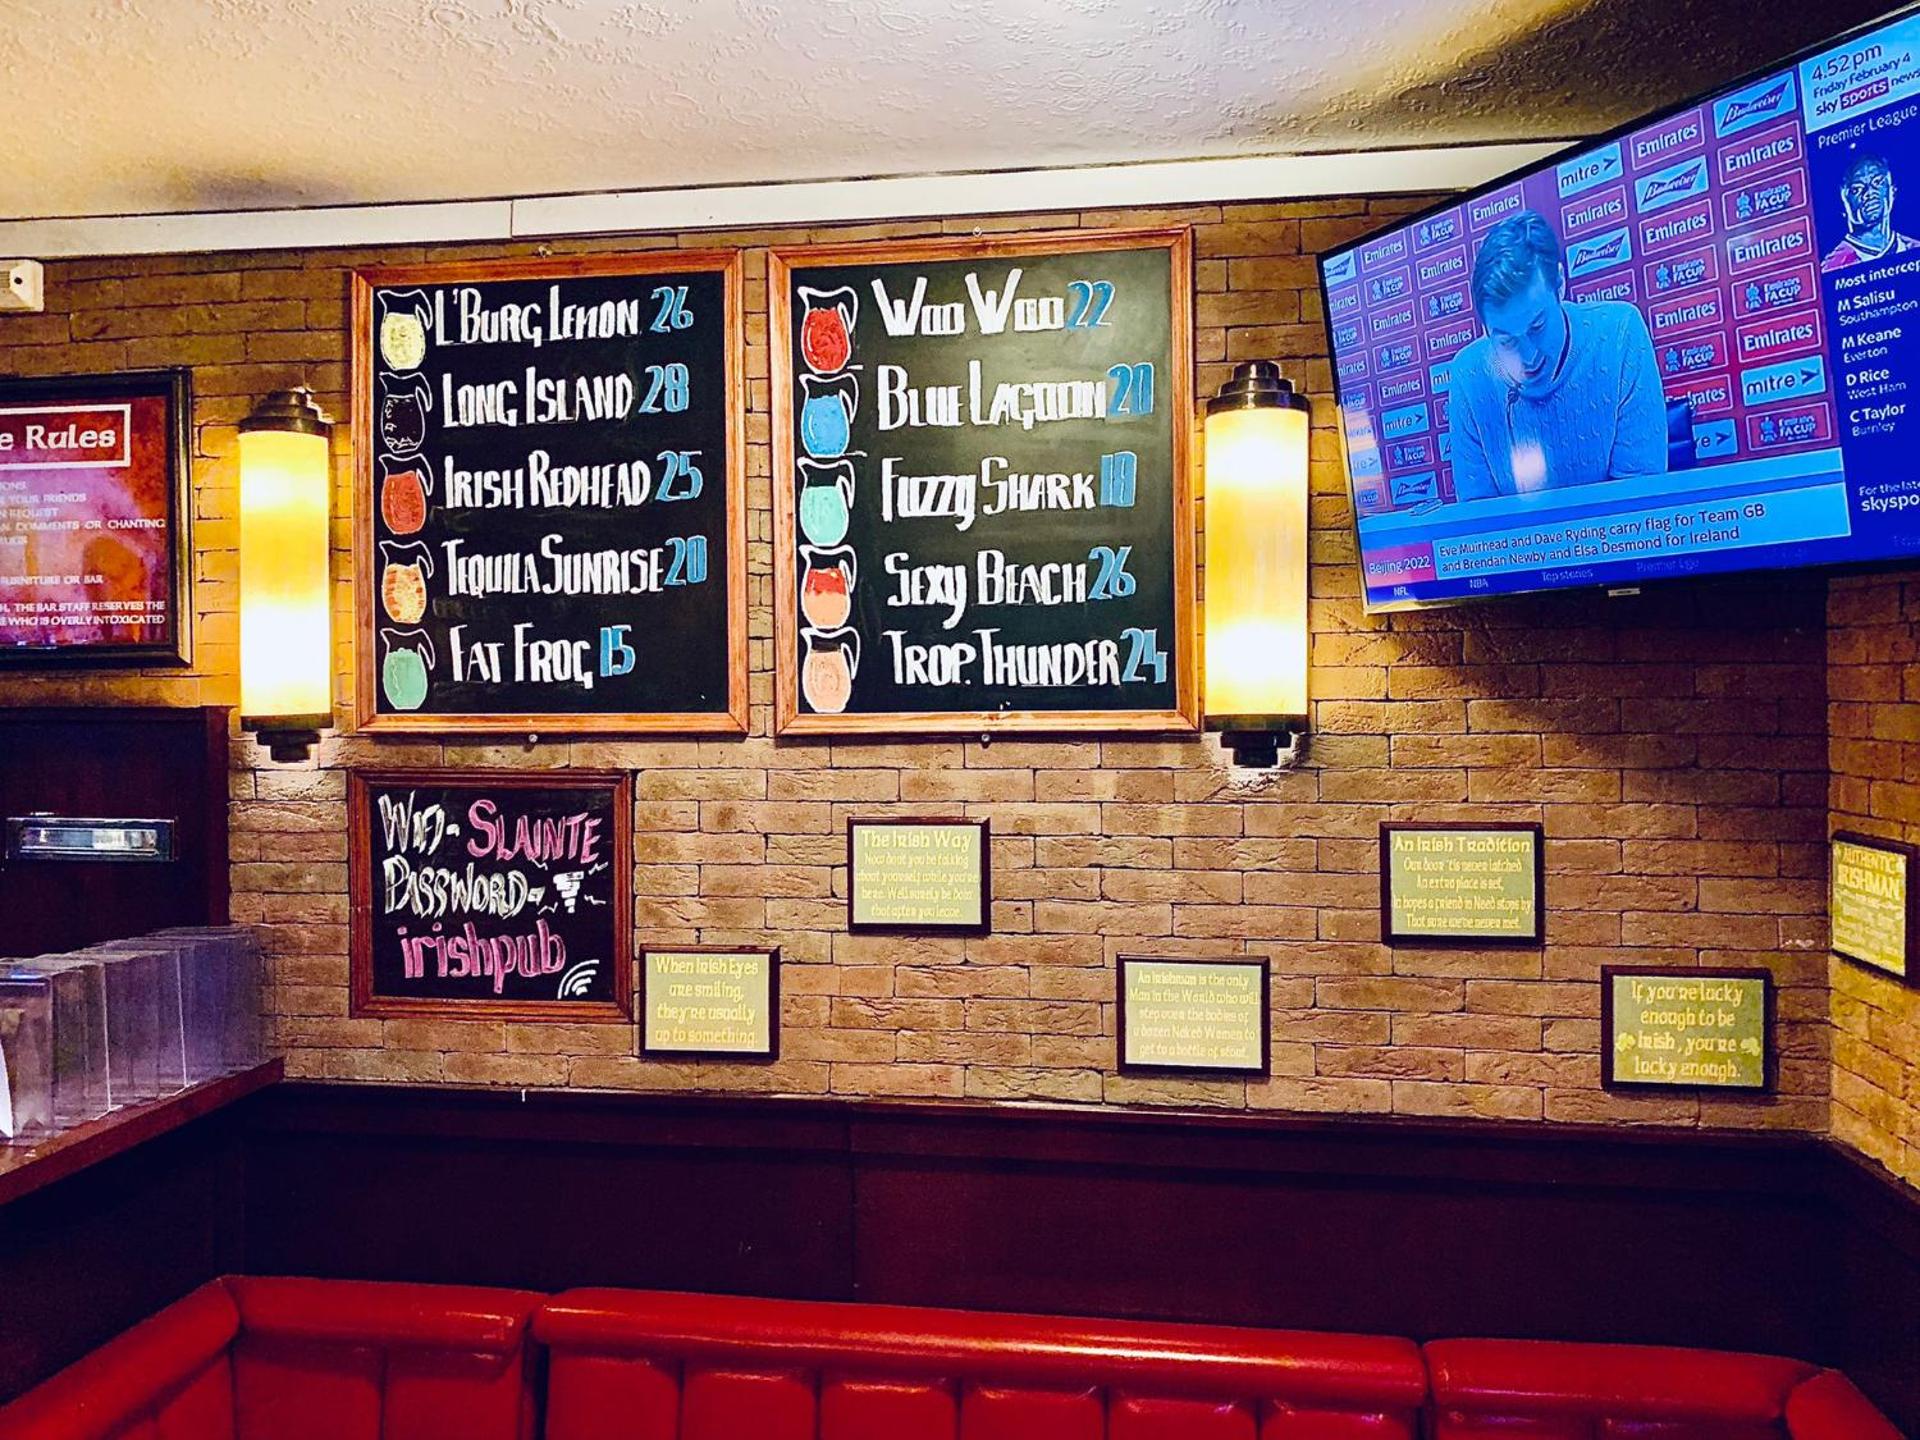 e Rules
YOUR FRIENDS
REQUEST
COMMENTS OR CHANTING
FURNITURE OR BAR
THE BAR STAFF RESERVES THE
WHO IS OVERLY INTOXICATED
L'BURG LEMON 26
LONG ISLAND 28
IRISH REDHEAD 25
TEQUILA SUNRISE 20
FAT FROG 15
WOO WOO 22
BLUE LAGOON 20
FUZZY SHARK 18
SEXY BEACH 26
TROP. THUNDER 24
4.52pm
Friday February 4
sky sports news
Premier League
Most intercep
M Salisu
Southampton
M Keane
Everton
D Rice
West Ham
C Taylor
Burnley
For the late
skyspo
Budweiser
Emirates
mitre
Emirates FA CUP
Beijing 2022
Eve Muirhead and Dave Ryding carry flag for Team GB
and Brendan Newby and Elsa Desmond for Ireland
NFL NBA Top stories Premier Lge
WIFI- SLAINTE
PASSWORD-
irishpub
When Irish Eyes
are smiling,
they're usually
up to something
The Irish Way
Now don't you be talking
about yourself while you're
here. We'll surely be doin'
that after you leave.
An Irishman is the only
Man in the World who will
step over the bodies of
a dozen Naked Women to
get to a bottle of stout.
An Irish Tradition
Our door 'tis never latched
An extra place is set,
In hopes a friend in Need stops by
That sure we've never met.
If you're lucky
enough to be
Irish, you're
lucky enough.
AUTHENTIC
IRISHMAN